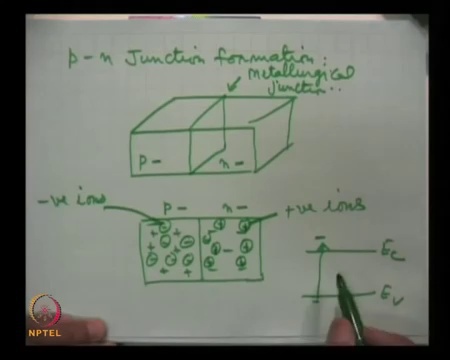 p-n Junction formation:
metallurgical
junction..
p- n-
-ve ions p- n- +ve ions
Ec
Ev
NPTEL